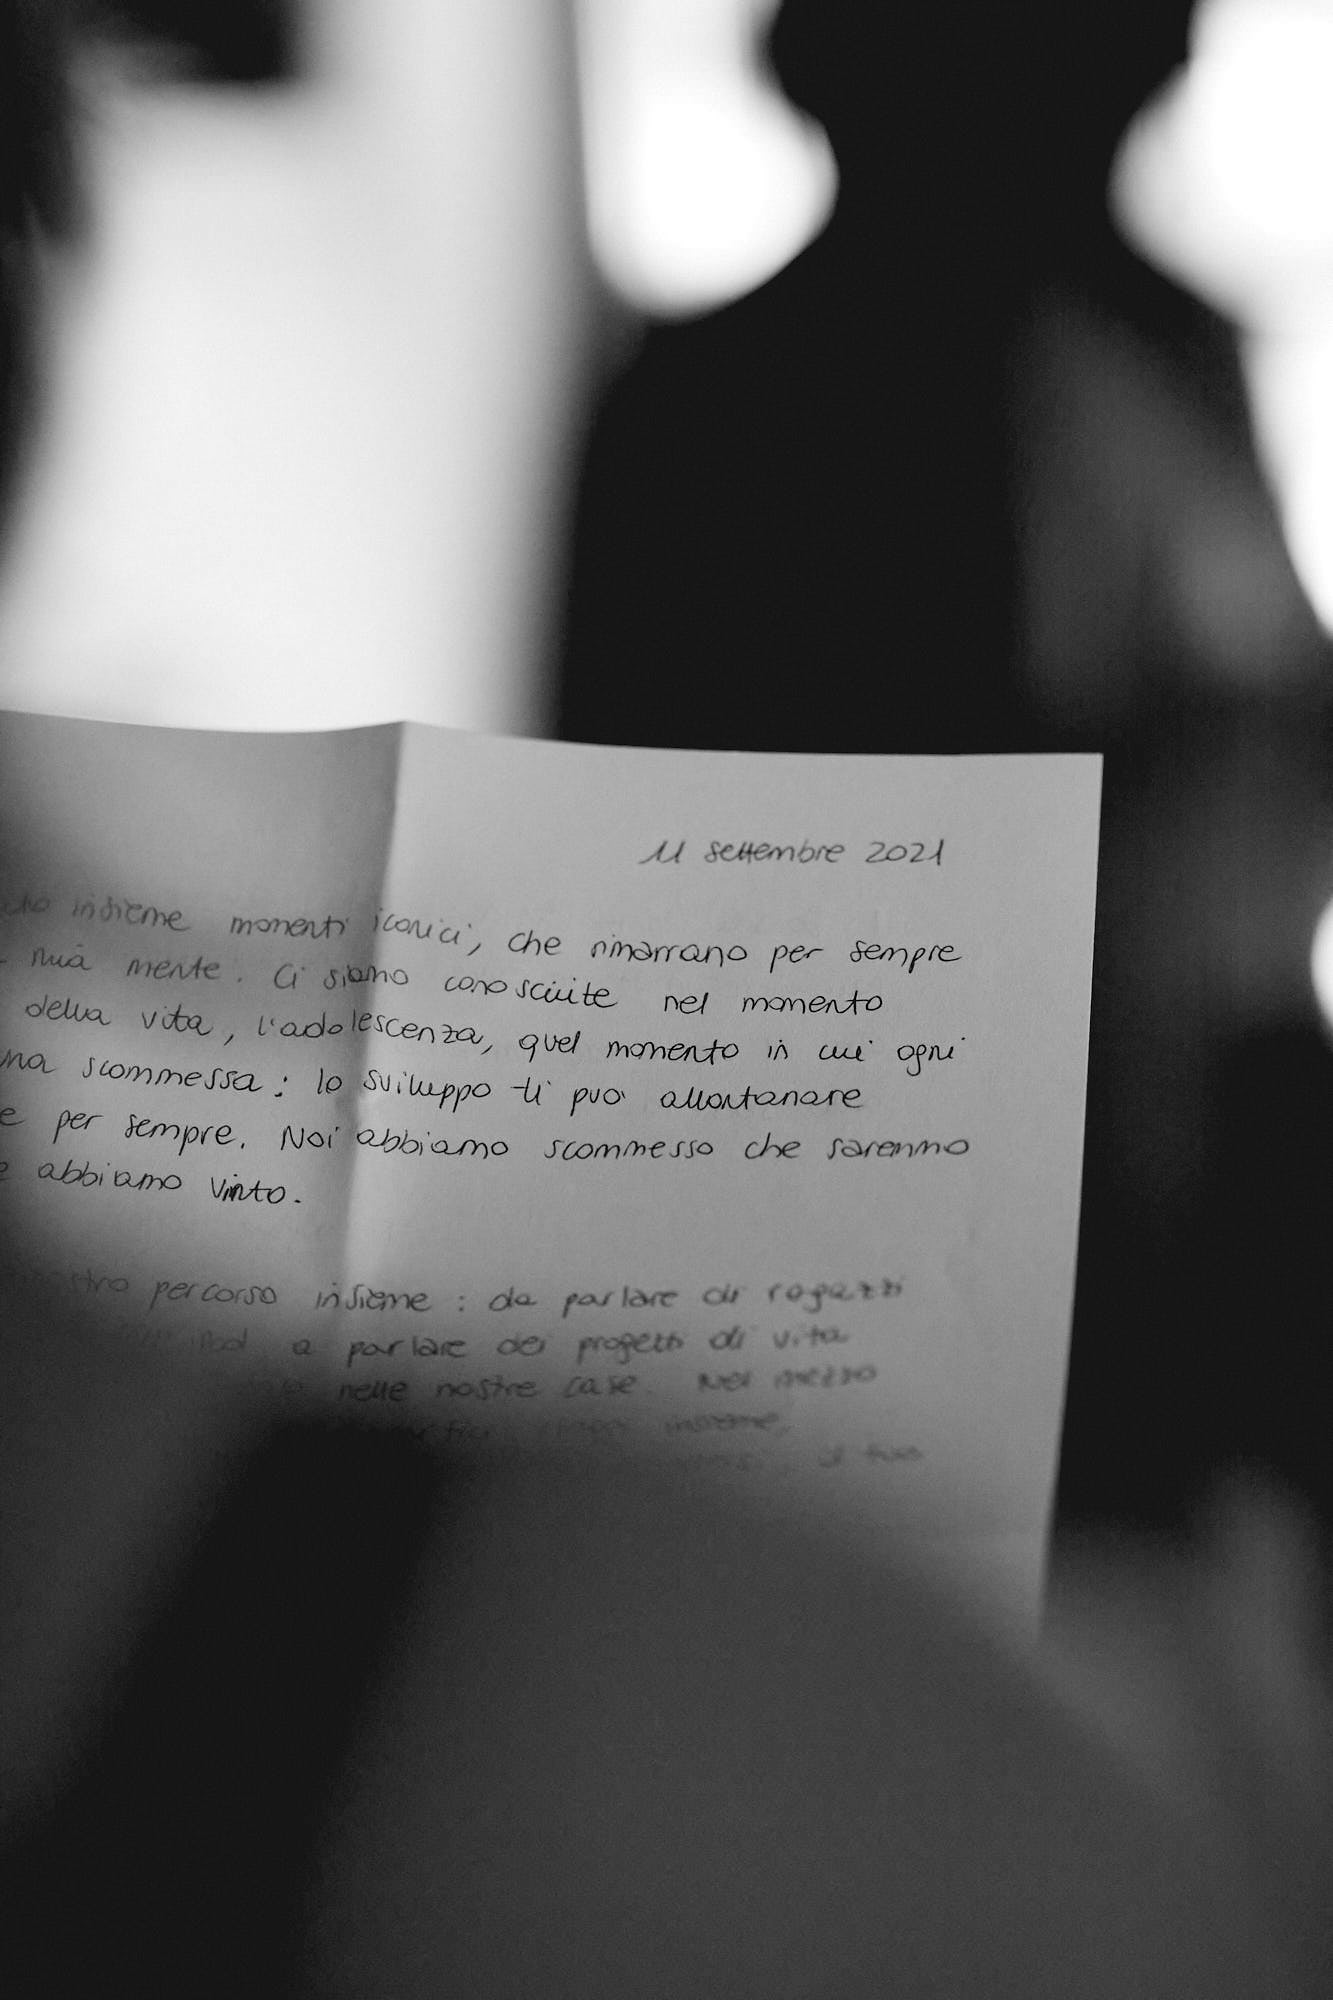 11 settembre 2021
insieme momenti iconici, che rimarrano per sempre
mia mente. Ci siamo conosciute nel momento
della vita, l'adolescenza, quel momento in cui ogni
scommessa: lo sviluppo ti può allontanare
e per sempre. Noi abbiamo scommesso che saremmo
abbiamo vinto.
percorso insieme: da parlare di ragazzi
a parlare dei progetti di vita
nelle nostre case. Nel mezzo
insieme,